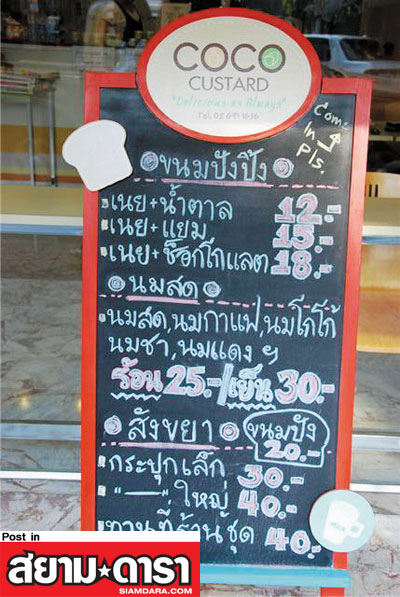 COCO
CUSTARD
"Delicious as Always"
Tel. 02 691 1636
Come
In
Pls.
ขนมปังปิ้ง
เนย+น้ำตาล 12.-
เนย+แยม 15.-
เนย+ช็อกโกแลต 18.-
นมสด
นมสด,นมกาแฟ,นมโกโก้
นมชา,นมแดง ฯ
ร้อน 25.-/เย็น 30.-
สังขยา ขนมปัง
20.-
กระปุกเล็ก 30.-
"—" ใหญ่ 40.-
ทานที่ร้าน ชุด 40.-
MILK
Post in
สยาม★ดารา
SIAMDARA.COM